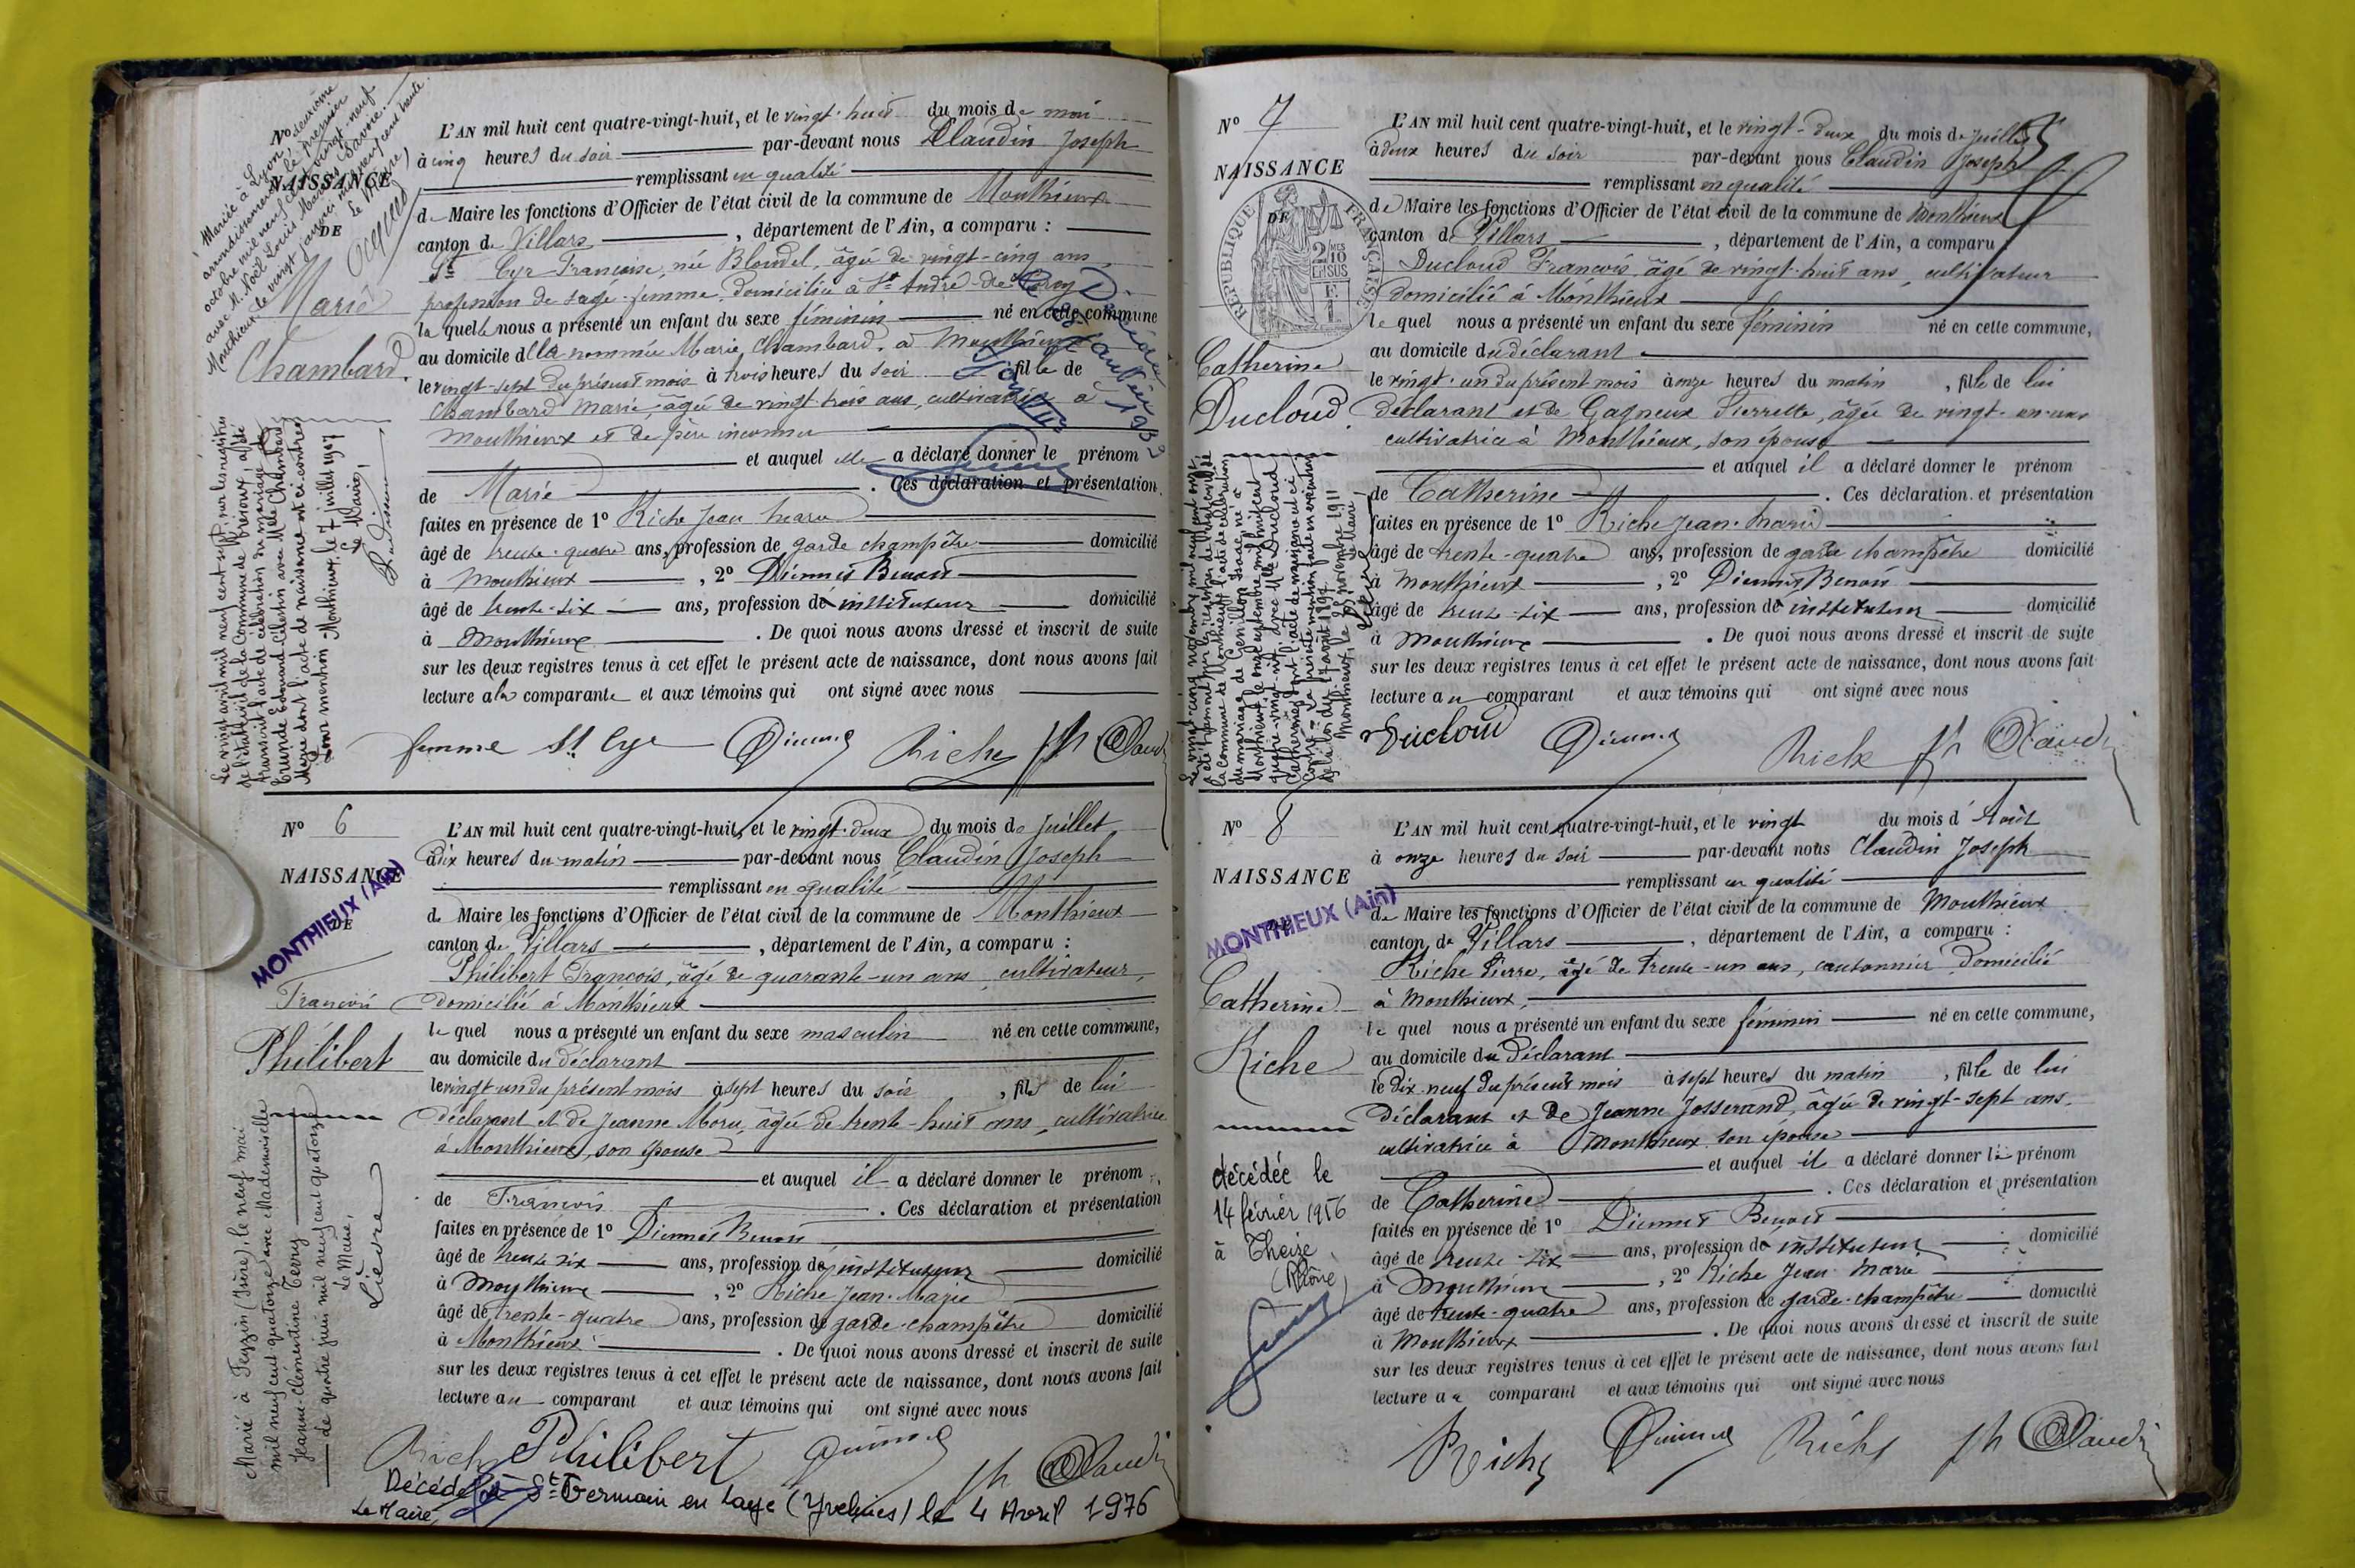 Mariée à Lyon, deuxième
arrondissement, le premier
octobre mil neuf cent vingt-neuf
avec M. Noël Louis Marius Savoie.
Monthieux le vingt janvier mil neuf cent trente
Le Maire,
No
NAISSANCE
DE
Marie
Chambard
Le vingt avril mil neuf cent sept, sur les registres
de l'état civil de la Commune de , a été
transcrit l'acte de célébration du mariage de
Edouard Célestin avec Melle Chambard
Marie dont l'acte de naissance est ci-contre
Pour mention Monthieux, le 7 juillet 1907
Le Maire,
L'AN mil huit cent quatre-vingt-huit, et le vingt-huit du mois de mai
à cinq heures du soir par-devant nous Claudin Joseph
remplissant en qualité
de Maire les fonctions d'Officier de l'état civil de la commune de Monthieux
canton de Villars, département de l'Ain, a comparu :
St Cyr Françoise, née Blondel, âgée de vingt-cinq ans,
profession de sage-femme, domiciliée à St André-de-Corcy
la quelle nous a présenté un enfant du sexe féminin né en cette commune
au domicile de la nommée Marie Chambard, à Monthieux
le vingt-sept du présent mois à trois heures du soir fille de
Chambard Marie, âgée de vingt-trois ans, cultivatrice à
Monthieux et de père inconnu
et auquel elle a déclaré donner le prénom
de Marie. Ces déclaration et présentation
faites en présence de 1º Riche Jean Marie
âgé de trente-quatre ans, profession de garde champêtre domicilié
à Monthieux, 2º Diennet Benoit
âgé de trente-six ans, profession de instituteur domicilié
à Monthieux. De quoi nous avons dressé et inscrit de suite
sur les deux registres tenus à cet effet le présent acte de naissance, dont nous avons fait
lecture a la comparante et aux témoins qui ont signé avec nous
femme St Cyr Diennet Riche Jh Claudin
Nº 6
NAISSANCE
DE
MONTHIEUX (Ain)
François
Philibert
Marié à Feyzin (Isère) le neuf mai
mil neuf cent quatorze avec Mademoiselle
Jeanne-Clémentine Terry
de quatre juin mil neuf cent quatorze
Le Maire,
Lièvre
L'AN mil huit cent quatre-vingt-huit, et le vingt-deux du mois de Juillet
à dix heures du matin par-devant nous Claudin Joseph
remplissant en qualité
de Maire les fonctions d'Officier de l'état civil de la commune de Monthieux
canton de Villars, département de l'Ain, a comparu :
Philibert François, âgé de quarante-un ans, cultivateur,
domicilié à Monthieux
le quel nous a présenté un enfant du sexe masculin né en cette commune,
au domicile du déclarant
le vingt-un du présent mois à sept heures du soir, fils de lui
déclarant et de Jeanne Moru, âgée de trente-huit ans, cultivatrice
à Monthieux, son épouse
et auquel il a déclaré donner le prénom
de François. Ces déclaration et présentation
faites en présence de 1º Diennet Benoit
âgé de trente six ans, profession de instituteur domicilié
à Monthieux, 2º Riche Jean-Marie
âgé de trente-quatre ans, profession de garde-champêtre domicilié
à Monthieux. De quoi nous avons dressé et inscrit de suite
sur les deux registres tenus à cet effet le présent acte de naissance, dont nous avons fait
lecture au comparant et aux témoins qui ont signé avec nous
Riche Philibert Diennet Jh Claudin
Décédé à St Germain en Laye (Yvelines) le 4 Avril 1976
Le Maire,
Nº 7
NAISSANCE
DE
RÉPUBLIQUE FRANÇAISE
2 MES
10
EN SUS
Catherine
Ducloud
L'AN mil huit cent quatre-vingt-huit, et le vingt-deux du mois de Juillet
à deux heures du soir par-devant nous Claudin Joseph
remplissant en qualité
de Maire les fonctions d'Officier de l'état civil de la commune de Monthieux
canton de Villars, département de l'Ain, a comparu :
Ducloud François, âgé de vingt-huit ans, cultivateur
domicilié à Monthieux
le quel nous a présenté un enfant du sexe féminin né en cette commune,
au domicile du déclarant
le vingt-un du présent mois à onze heures du matin, fille de lui
déclarant et de Gagneux Pierrette, âgée de vingt-un ans
cultivatrice à Monthieux, son épouse
et auquel il a déclaré donner le prénom
de Catherine. Ces déclaration et présentation
faites en présence de 1º Riche Jean-Marie
âgé de trente-quatre ans, profession de garde champêtre domicilié
à Monthieux, 2º Diennet Benoit
âgé de trente-six ans, profession de instituteur domicilié
à Monthieux. De quoi nous avons dressé et inscrit de suite
sur les deux registres tenus à cet effet le présent acte de naissance, dont nous avons fait
lecture au comparant et aux témoins qui ont signé avec nous
Ducloud Diennet Riche Jh Claudin
Nº 8
NAISSANCE
MONTHIEUX (Ain)
Catherine
Riche
décédée le
14 février 1956
à Theizé
(Rhône)
L'AN mil huit cent quatre-vingt-huit, et le vingt du mois d'Août
à onze heures du soir par-devant nous Claudin Joseph
remplissant en qualité
de Maire les fonctions d'Officier de l'état civil de la commune de Monthieux
canton de Villars, département de l'Ain, a comparu :
Riche Pierre, âgé de trente-un ans, cantonnier domicilié
à Monthieux,
le quel nous a présenté un enfant du sexe féminin né en cette commune,
au domicile du déclarant
le dix-neuf du présent mois à sept heures du matin, fille de lui
déclarant et de Jeanne Josserand, âgée de vingt-sept ans,
cultivatrice à Monthieux son épouse
et auquel il a déclaré donner le prénom
de Catherine. Ces déclaration et présentation
faites en présence de 1º Diennet Benoit
âgé de trente-six ans, profession de instituteur domicilié
à Monthieux, 2º Riche Jean Marie
âgé de trente-quatre ans, profession de garde-champêtre domicilié
à Monthieux. De quoi nous avons dressé et inscrit de suite
sur les deux registres tenus à cet effet le présent acte de naissance, dont nous avons fait
lecture au comparant et aux témoins qui ont signé avec nous
Riche Diennet Riche Jh Claudin